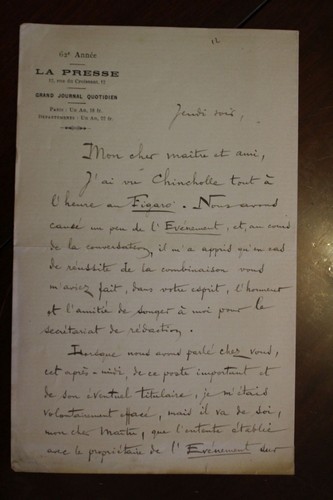 62e Année
LA PRESSE
12, rue du Croissant, 12
GRAND JOURNAL QUOTIDIEN
Paris : Un An,
Départements : Un An,
12
Jeudi soir,
Mon cher maître et ami,
J'ai vu Chincholle tout à
l'heure au Figaro. Nous avons
causé un peu de l'Evénement, et, au cours
de la conversation, il m'a appris qu'en cas
de réussite de la combinaison vous
m'aviez fait, dans votre esprit, l'honneur
et l'amitié de songer à moi pour le
secrétariat de rédaction.
Lorsque nous avons parlé chez vous,
cet après-midi de ce poste important et
de son éventuel titulaire, je m'étais
volontairement effacé, mais il va de soi,
mon cher Maître, que l'entente établie
avec le propriétaire de l'Evénement sur